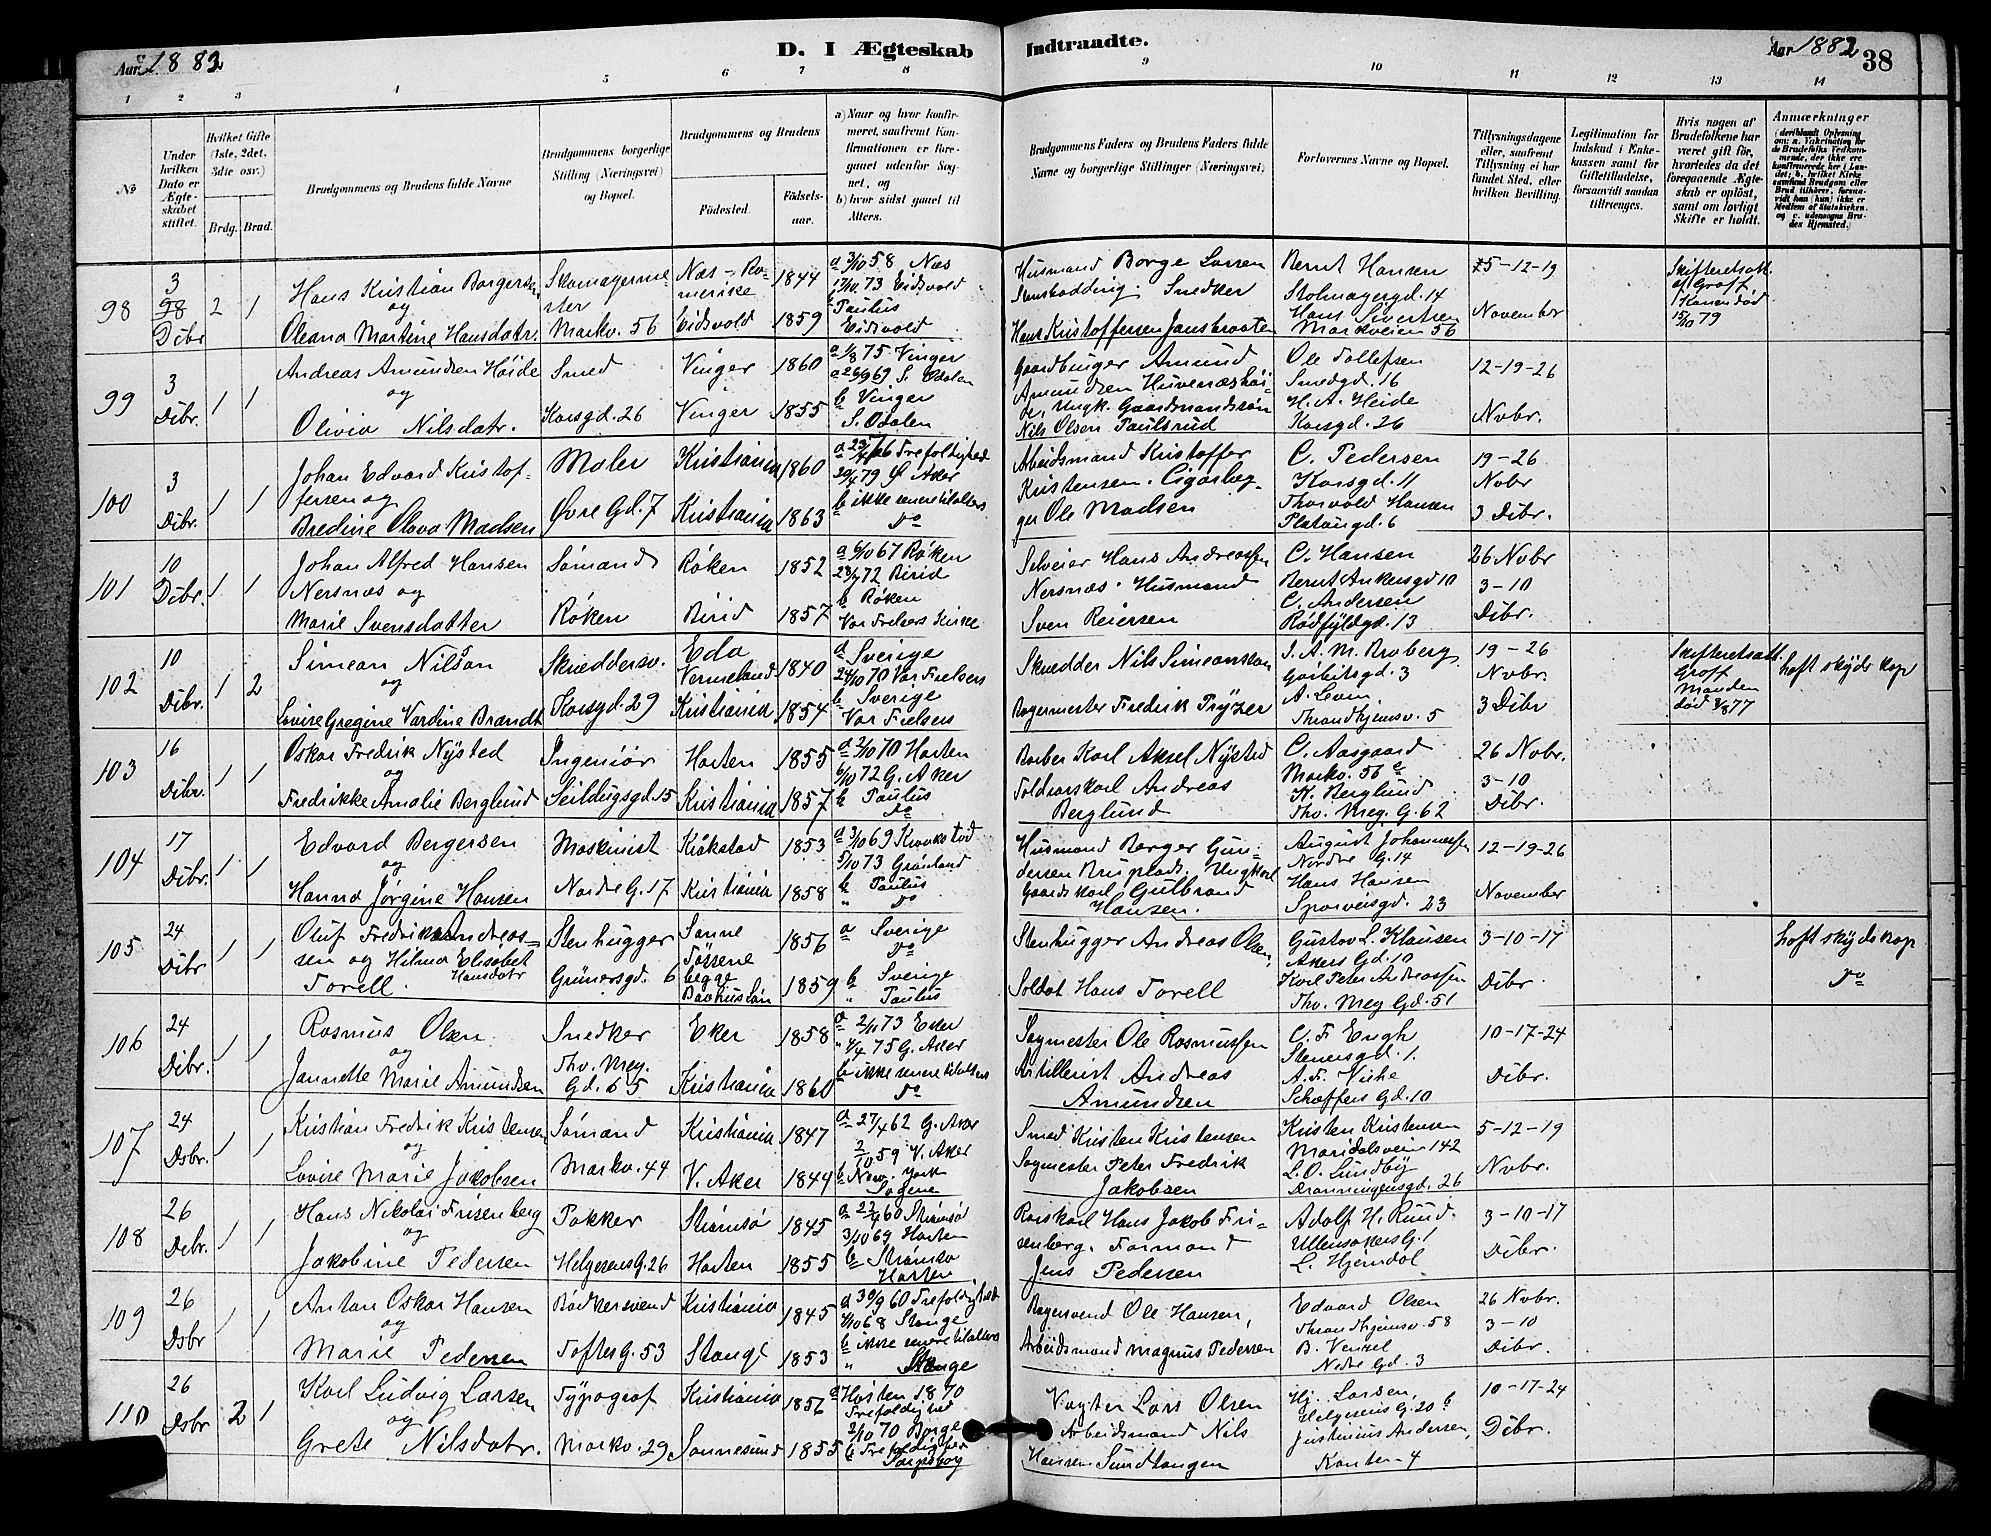 Aar 1882
D. I Ægteskab
Indtraadte.
Aar 1882
38
1 2 3 4 5 6 7 8 9 10 11 12 13 14
No
Under hvilken Dato er Ægteskabet stiftet.
Hvilket Gifte (1ste, 2det, 3die osv.)
Brdg. Brud.
Brudgommens og Brudens fulde Navne
Brudgommens borgerlige Stilling (Næringsvei) og Bopæl.
Brudgommens og Brudens
Fødested.
Fødselsaar.
a) Naar og hvor konfirmeret, saafremt Konfirmationen er foregaaet udenfor Sognet, og
b) hvor sidst gaaet til Alters.
Brudgommens Faders og Brudens Faders fulde Navne og borgerlige Stillinger (Næringsvei)
Forlovernes Navne og Bopæl.
Tillysningsdagene eller, saafremt Tillysning ei har fundet Sted, efter hvilken Bevilling.
Legitimation for Indskud i Enkekassen samt for Giftetilladelse, forsaavidt saadan tiltrænges.
Hvis nogen af Brudefolkene har været gift før, hvorledes da det foregaaende Ægteskab er opløst, samt om lovligt Skifte er holdt.
Anmærkninger
98 3 Dibr 2 1
Hans Kristian Borgersen
og
Oleana Martine Hansdatr.
Skomagermester
Markv. 56
Næs - Romerike 1844
Eidsvold 1859
a 3/10 58 Næs
12/10 73 Eidsvold
b Paulus
Eidsvold
Husmand Borge Larsen
Snedker
Hans Kristoffersen Jansbraaten
Bernt Hansen
Stolmagergd. 14
Hans Sivertsen
Markveien 56
5-12-19
November
Skifteretsatt.
af Groft
Konen død
15/10 79
99 3 Dibr. 1 1
Andreas Amundsen Høide
og
Olivia Nilsdatr.
Smed
Korsgd. 26
Vinger 1860
Vinger 1855
a 1/8 75 Vinger
a 26/9 69 S. Odalen
b Vinger
S. Odalen
Gaardbruger Amund
Amundsen
Ungk. Gaardmandssøn
Nils Olsen Paulsrud
Ole Tollefsen
Smedgd. 16
H. A. Heide
Korsgd. 26
12-19-26
Nobr.
100 3 Dibr. 1 1
Johan Edvard Kristoffersen
og
Bredine Olava Madsen
Maler
Øvre Gd. 7
Kristiania 1860
Kristiania 1863
Trefoldighed
20/4 79 Ø. Aker
b ikke senere tilalters
Do
Arbeidsmand Kristoffer
Kristensen. Cigarlægger
Ole Madsen
C. Pedersen
Korsgd. 11
Thorvald Hansen
Platangd. 6
19-26
Nobr
3 Dibr.
101 10 Dibr. 1 1
Johan Alfred Hansen
Nersnæs og
Marie Svensdatter
Sømand
Røken
Røken 1852
Birid 1857
a 6/10 67 Røken
23/7 72 Birid
b Røken
Vor Frelsers Kirke
Selveier Hans Andreassen
Nersnæs. Husmand
Sven Reiersen
C. Hansen
Bernt Ankersgd 10
C. Andersen
Rødfyldgd. 13
26 Nobr
3-10
Dibr.
102 10 Dibr. 1 2
Simeon Nilson
og
Lovise Gregine Vardine Brandt
Skræddersv.
Korsgd. 29
Eda Vermeland 1840
Kristiania 1854
a Sverige
24/10 70 Vor Frelsers
b Sverige
Vor Frelsers
Skrædder Nils Simeonsson
Bagermester Fredrik Pryzer
J. A. M. Broberg
Garbitsgd. 3
A. Leven
Throndhjemsv. 5
19-26
Nobr.
3 Dibr
Skifteretsatt.
Groft
Manden
død 3/8 77
haft skyds kop
103 16 Dibr. 1 1
Oskar Fredrik Nysted
og
Fredrikke Amalie Berglund
Ingeniør
Seildugsgd. 15
Horten 1855
Kristiania 1857
a 2/10 70 Horten
6/10 72 G. Aker
b Paulus
Do
Barber Karl Aksel Nysted
Toldvarskarl Andreas
Berglund
C. Aasgaard
Markv. 56 c
K. Berglund
Thv. Mey. G. 62
26 Nobr.
3-10
Dibr.
104 17 Dibr. 1 1
Edvard Bergersen
og
Hanna Jørgine Hansen
Maskinist
Nordre G. 17
Kråkstad 1853
Kristiania 1858
a 3/10 69 Kraakstad
5/10 73 Grønland
b Paulus
" Do
Husmand Borger Gundersen
Bruplads. Ungkarl
Gaardskarl Gulbrand
Hansen.
August Johannessen
Nordre G. 14
Hans Hansen
Sporveisgd. 23
12-19-26
November
105 24 Dibr 1 1
Oluf Fredrik Andreassen
og Hilma Elisabet
Hansdatr
Torell.
Stenhugger
Grünersgd. 6
Sanne 1856
Tossene
begge
Baahuslän 1859
a Sverige
Do
b Sverige
" Paulus
Stenhugger Andreas Olsen,
Soldat Hans Torell
Gustav L. Klausen
Akers Gd. 10
Karl Peter Andreassen
Thv. Mey Gd. 51
3-10-17
Dibr.
haft skyds kop
Do
106 24 Dibr. 1 1
Rasmus Olsen
og
Jannette Marie Amundsen
Snedker
Thv. Mey.
Gd. 65
Eker 1858
Kristiania 1860
a 2/11 73 Eker
" 4/4 75 G. Aker
b ikke senere tilalters
Do
Sagmester Ole Rasmussen
Artillerist Andreas
Amundsen
C. F. Engh
Stenersgd. 1.
A. F. Viehe
Schæffers Gd. 10
10-17-24
Dibr.
107 24 Dsbr. 1 1
Kristian Fredrik Kristensen
og
Lovise Marie Jakobsen
Sømand
Markv. 44
Kristiania 1847
V. Aker 1849
a 27/4 62 G. Aker
2/10 59 V. Aker
b New-york
Sagene
Smed Kristen Kristensen
Sagmester Peter Fredrik
Jakobsen
Kristen Kristensen
Maridalsveien 142
L. O. Lundby
Dronningensgd. 26
5-12-19
Nobr.
108 26 Debr. 1 1
Hans Nikolai Frisenberg
og
Jakobine Pedersen
Pakker
Helgesens G. 26
Strømsø 1845
Horten 1855
a 22/4 60 Strømsø
3/10 69 Horten
b Strømsø
Horten
Hans Jakob Frisenberg.
Formand
Jens Pedersen
Adolf H. Ruud.
Ullensakers G. 1
L. Hjemdal
3-10-17
Dibr.
109 26 Dsbr 1 1
Anton Oskar Hansen
og
Marie Pedersen
Bødkersvend
Toftes G. 53
Kristiania 1845
Stange 1853
a 30/9 60 Trefoldighed
4/10 68 Stange
b ikke senere tilalters
" Stange
Bagersvend Ole Hansen,
Arbeidsmand Magnus Pedersen
Edvard Olsen
Throndhjemsv. 58
B. Venzel
Nedre Gd. 3
26 Nobr.
3-10
Dibr.
110 26 Dsbr 2 1
Karl Ludvig Larsen
og
Grete Nilsdatr.
Typograf
Markv. 29
Kristiania 1856
Sannesund 1855
a Høsten 1870
Trefoldighed
2/10 70 Borge
b Trefoldighed
Sarpsborg
Vagter Lars Olsen
Arbeidsmand Nils
Hansen Sundtangen
Hj. Larsen,
Helgesens G. 20 b
Justinius Andersen,
10-17-24
Dibr.